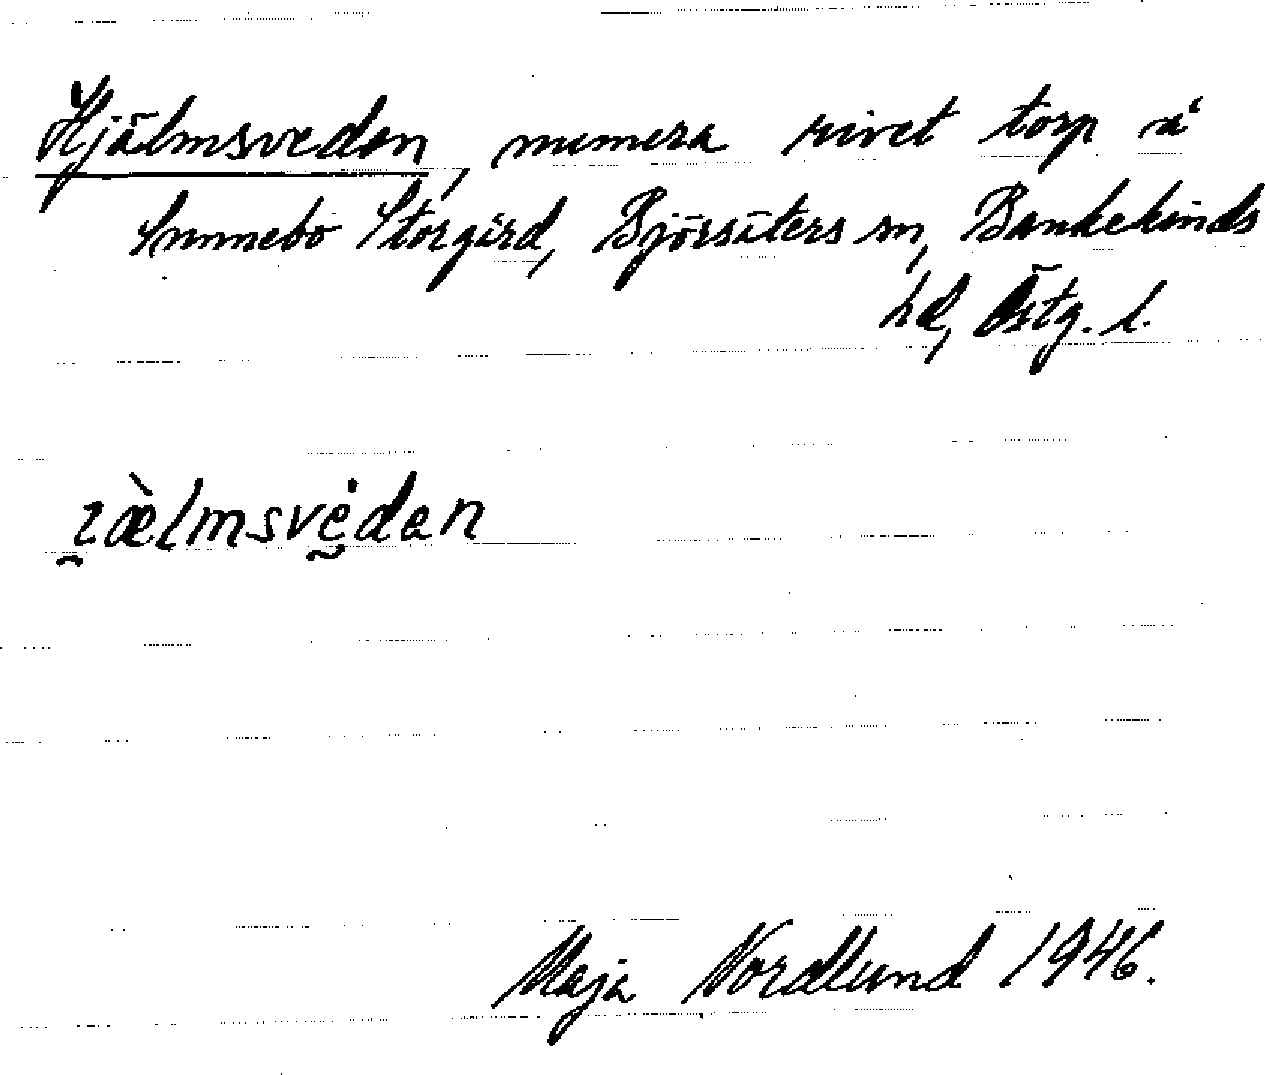 Hjälmsveden, numera rivet torp å
Sunnebo Storgård, Björsäters sn, Bankekinds
hd, Östg. l.
ı̯æ̀lmsvé̯dən
Maja Nordlund 1946.